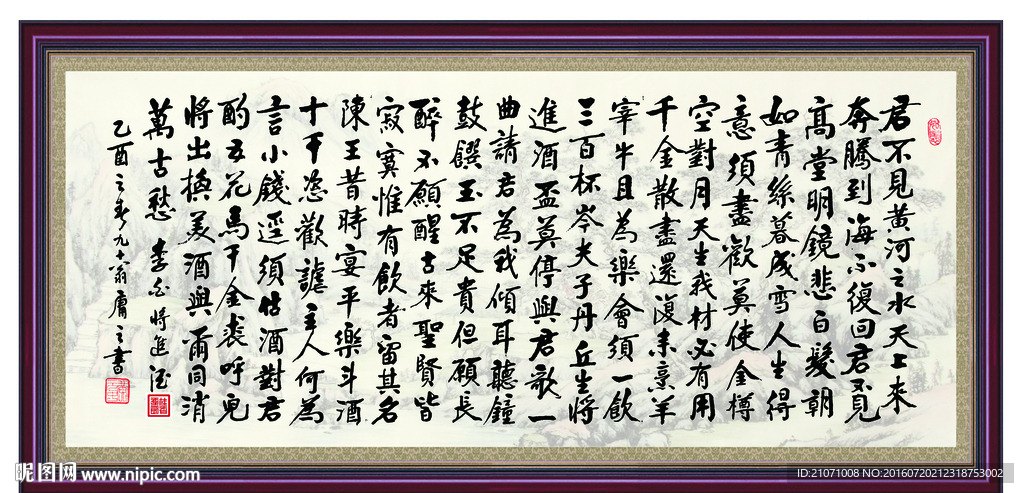 君不見黃河之水天上來
奔騰到海不復回君不見
高堂明鏡悲白髮朝
如青絲暮成雪人生得
意須盡歡莫使金樽
空對月天生我材必有用
千金散盡還復來烹羊
宰牛且為樂會須一飲
三百杯岑夫子丹丘生將
進酒盃莫停與君歌一
曲請君為我傾耳聽鐘
鼓饌玉不足貴但願長
醉不願醒古來聖賢皆
寂寞惟有飲者留其名
陳王昔時宴平樂斗酒
十千恣歡謔主人何為
言小錢逕須沽酒對君
酌五花馬千金裘呼兒
將出換美酒與爾同消
萬古愁 李白將進酒
乙酉之春九十翁庸之書
昵图网 www.nipic.com
ID:21071008 NO:20160720212318753002